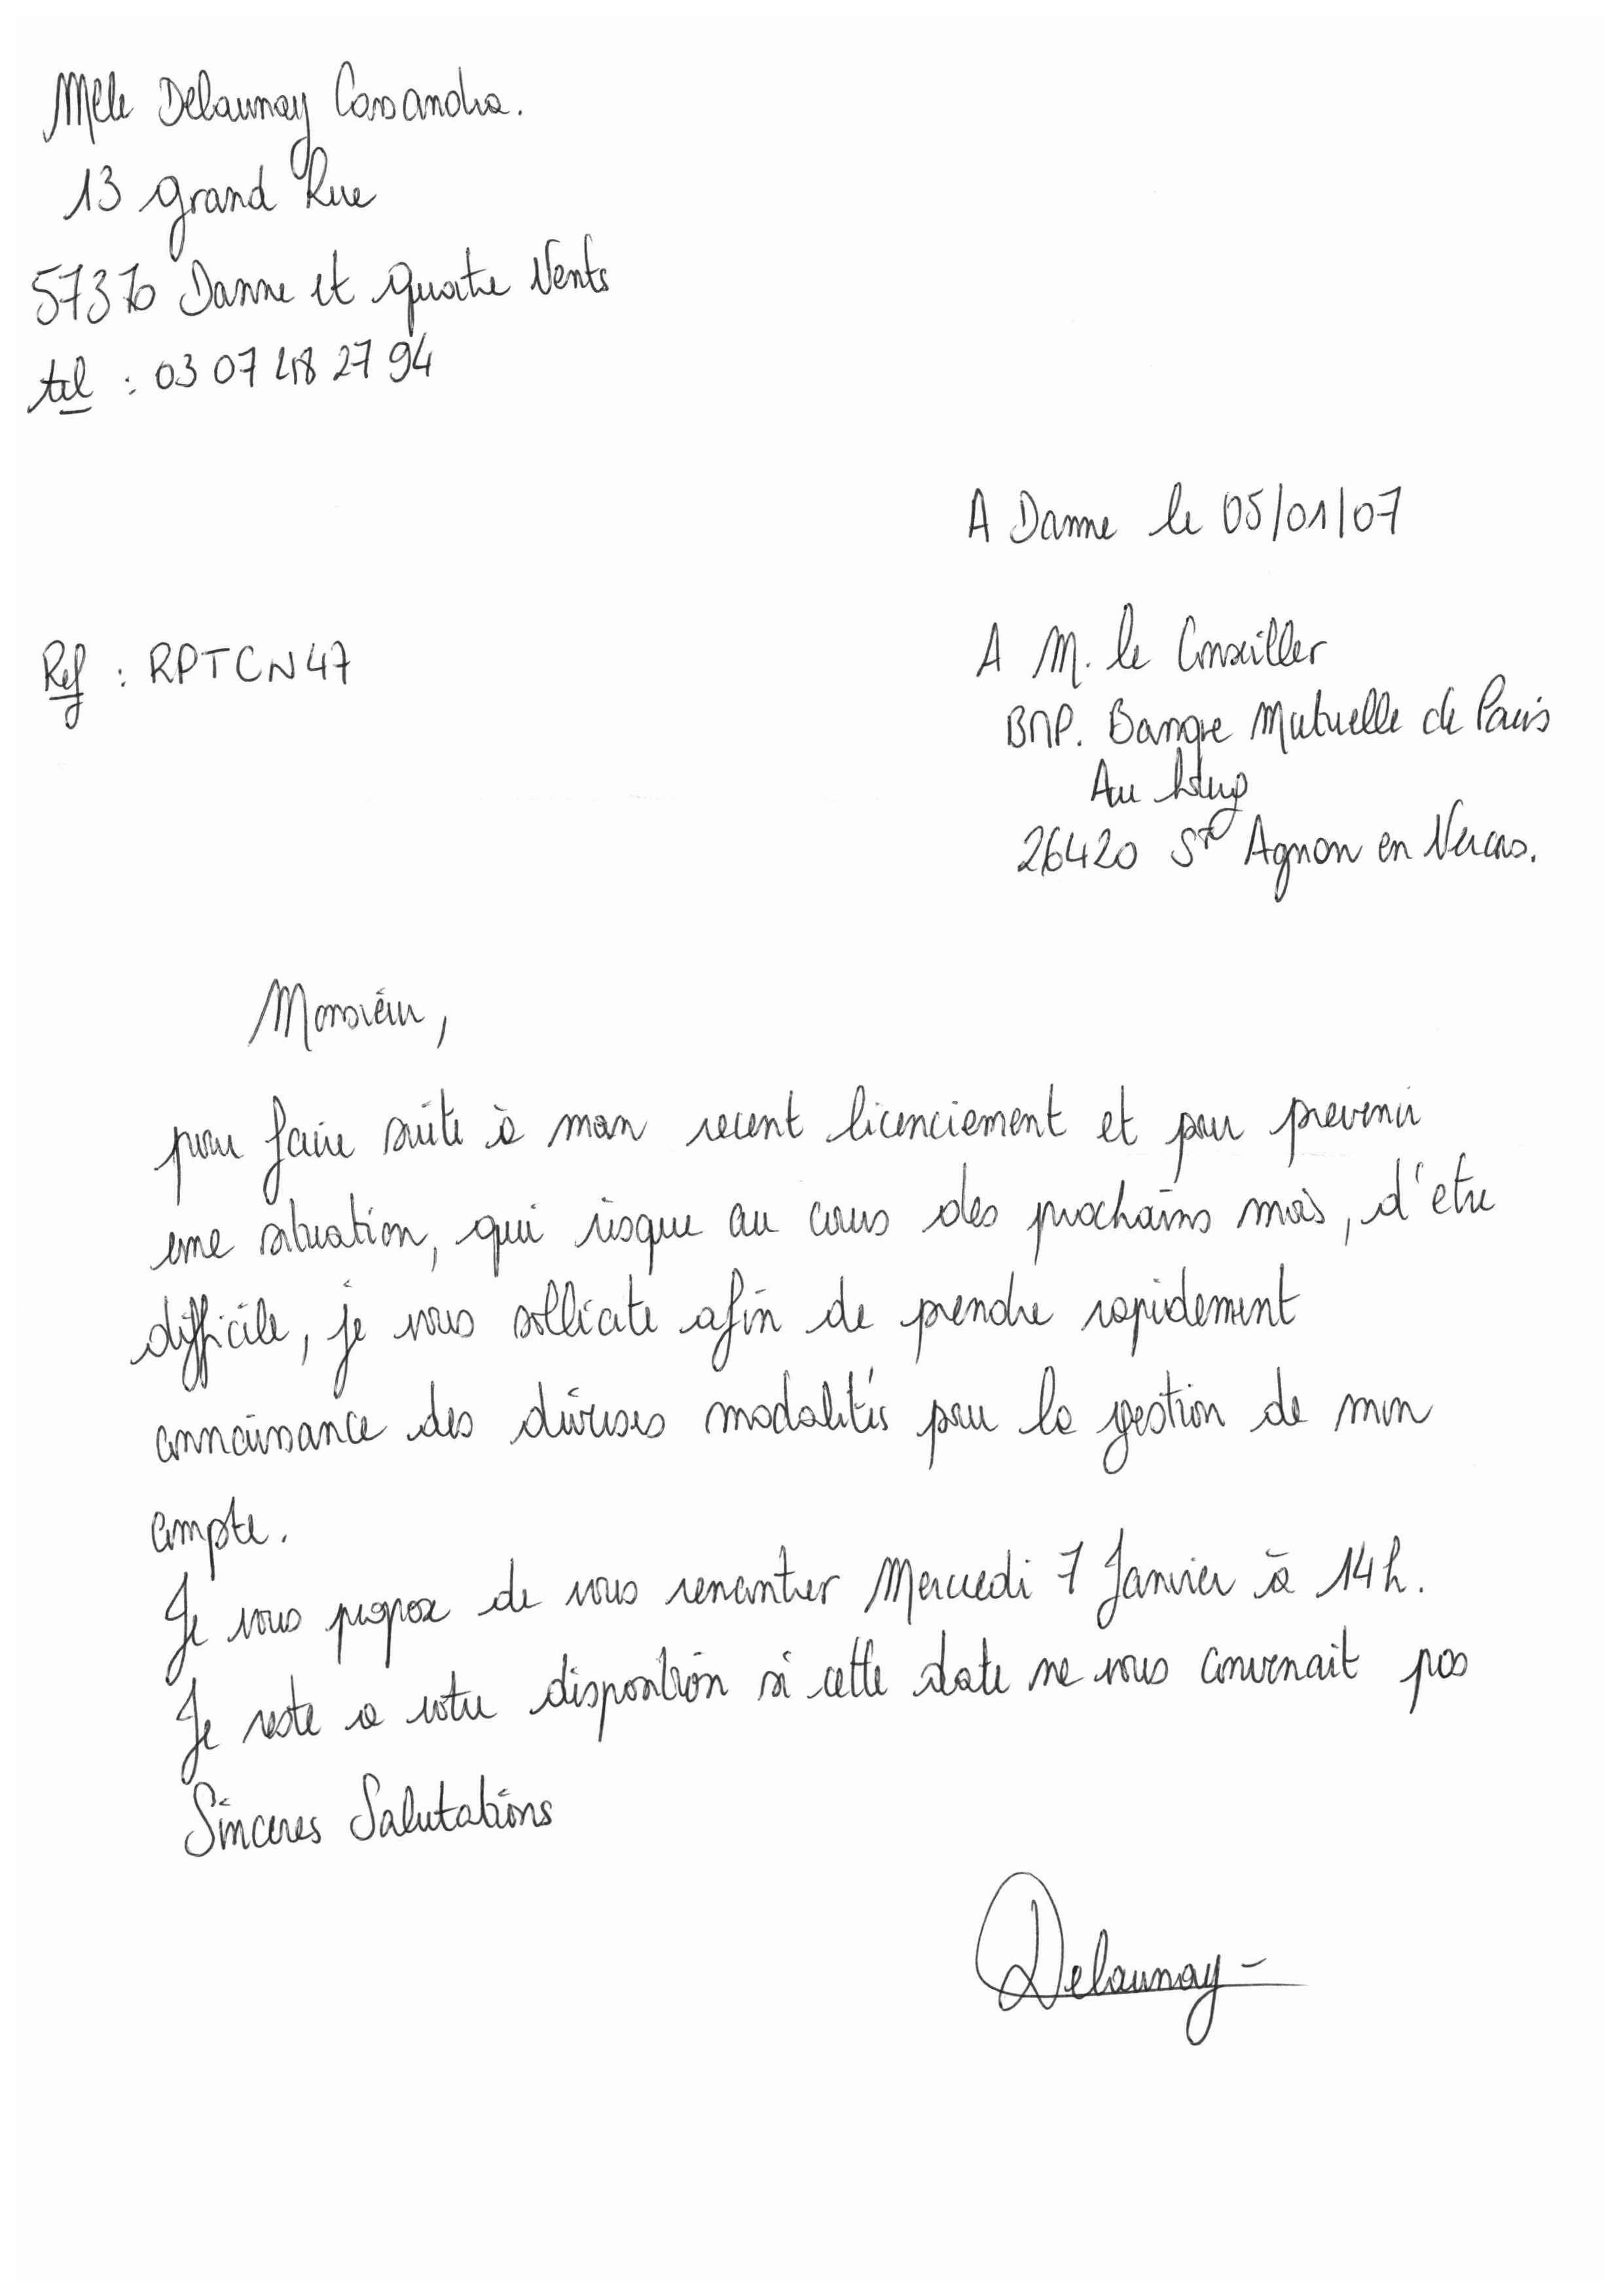 Mlle Delaunay Cassandra.
13 grand Rue
57370 Danne et quatre Vents
tel : 03 07 48 27 94
A Danne le 05/01/07
Ref : RPTCN47
A M. le Conseiller
BMP. Banque Mutuelle de Paris
Au
26420 St Agnan en Vercors.
Monsieur,
pour faire suite à mon recent licenciement et pour prevenir
une situation, qui risque au cours des prochains mois, d'etre
difficile, je vous sollicite afin de prendre rapidement
connaissance des diverses modalités pour la gestion de mon
compte.
Je vous propose de vous rencontrer Mercredi 7 Janvier à 14h.
Je reste a votre disposition si cette date ne vous convenait pas
Sinceres Salutations
Delaunay